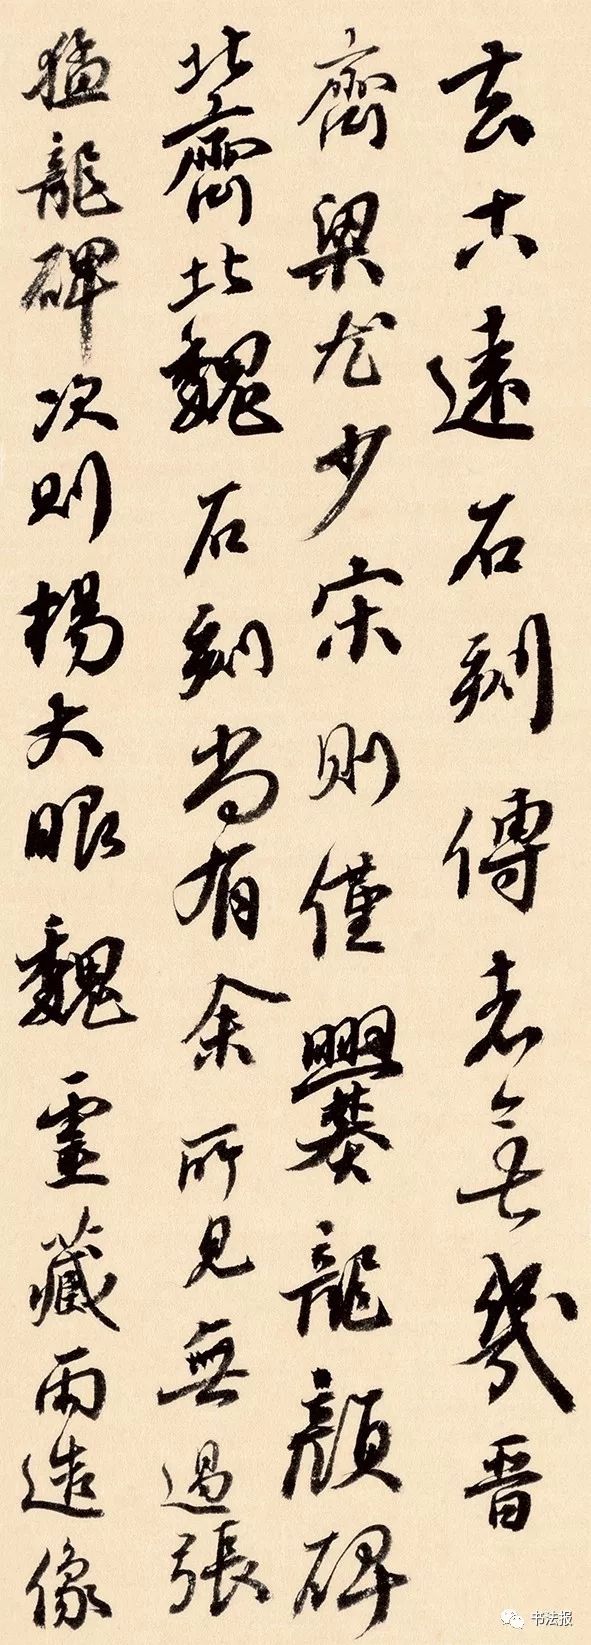 去古远石刻傳者無幾晋
齊梁尤少宋則僅爨龍顔碑
北齊北魏石刻尚有余所見無過張
猛龍碑次则楊大眼魏靈藏两造像
书法报